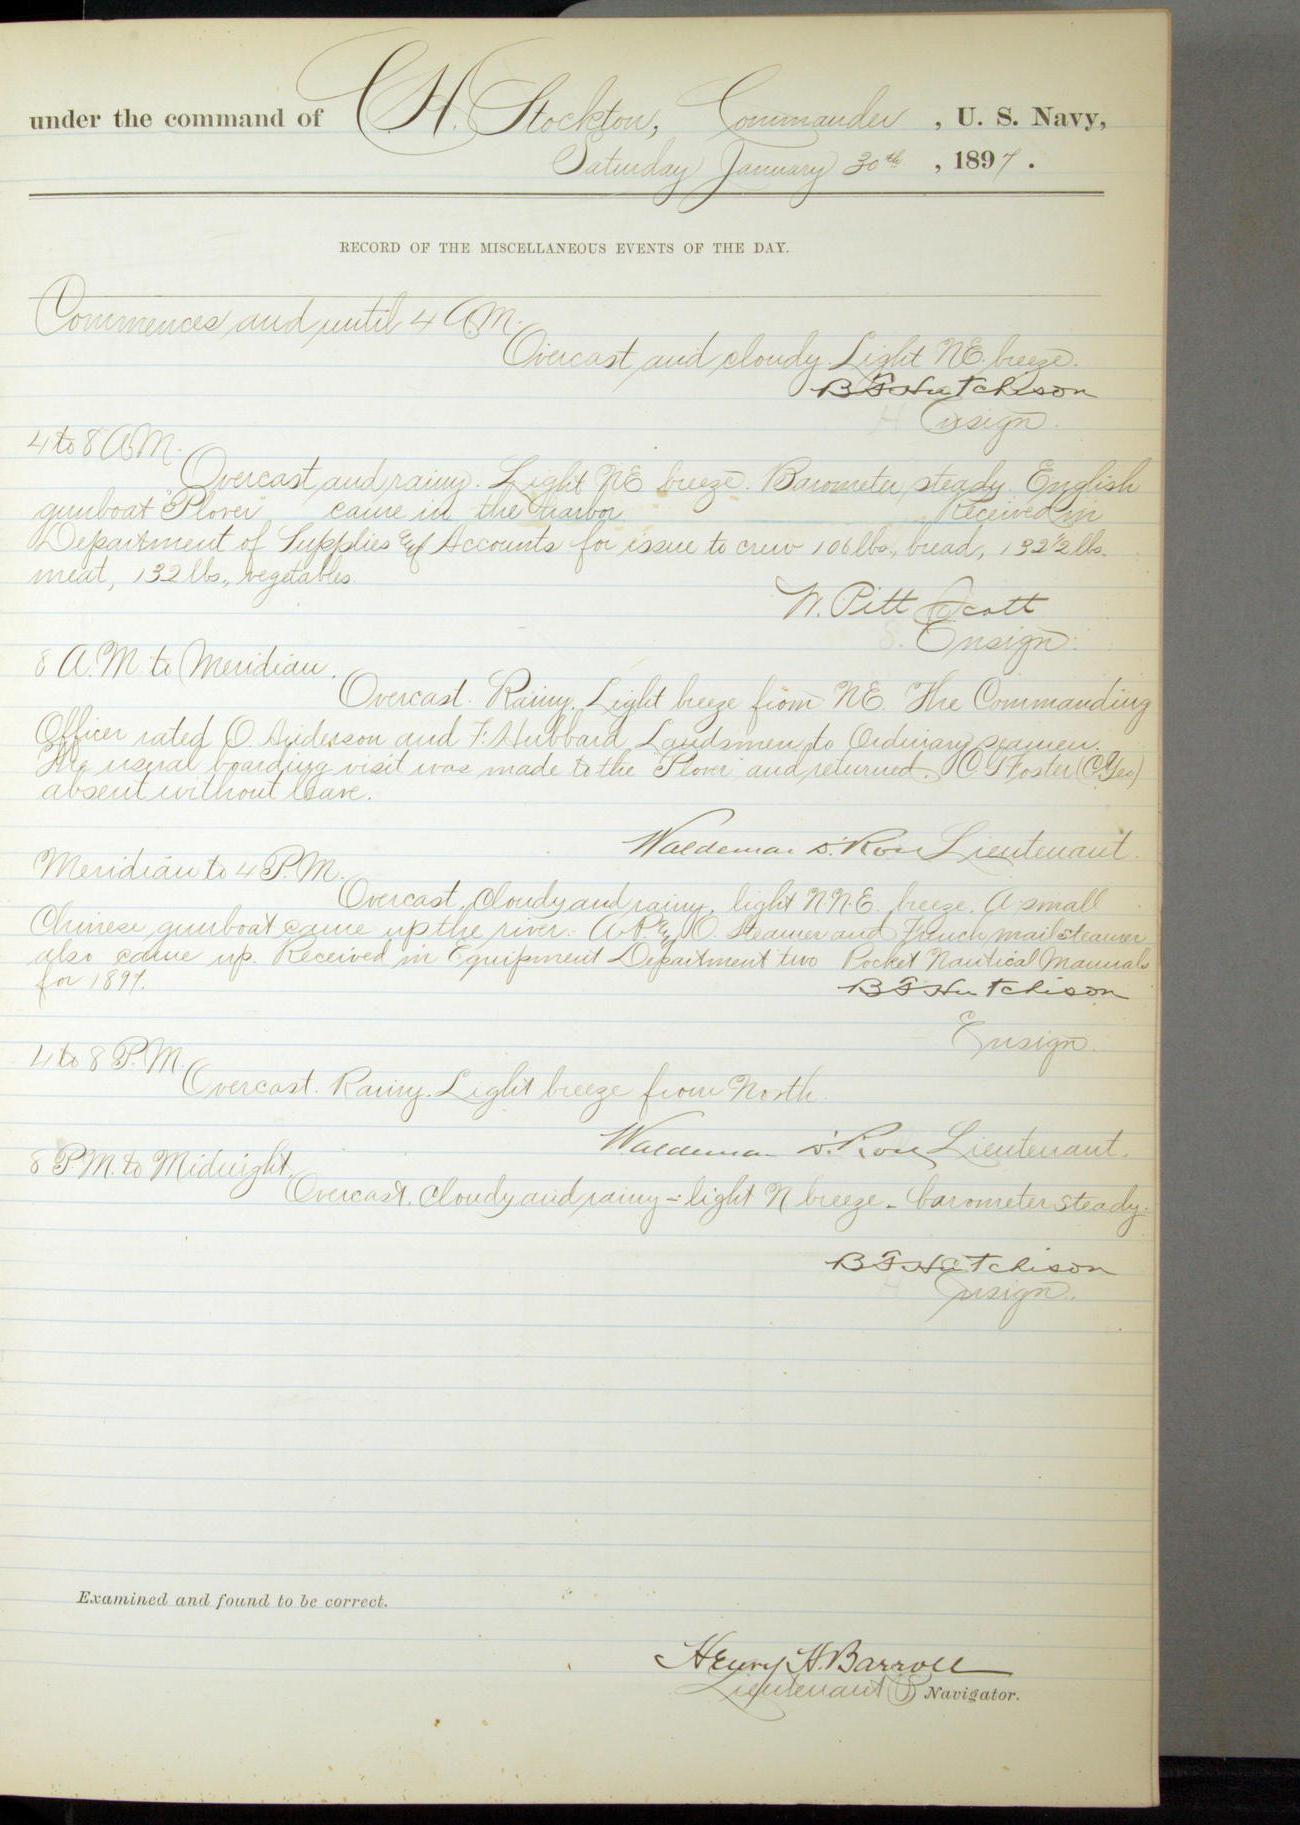 under the command of C. H. Stockton, Commander, U. S. Navy,
Saturday January 30th, 1897.
RECORD OF THE MISCELLANEOUS EVENTS OF THE DAY.
Commences and until 4 A.M.
Overcast and cloudy. Light NE. breeze.
B F Hutchison
Ensign.
4 to 8 A.M.
Overcast and rainy. Light NE breeze. Barometer steady. English
gunboat "Plover" came in the harbor Received in
Department of Supplies & Accounts for issue to crew 106 lbs., bread, 132 1/2 lbs.
meat, 132 lbs., vegetables.
W. Pitt Scott
Ensign.
8 A.M. to Meridian.
Overcast. Rainy. Light breeze from NE. The Commanding
Officer rated O. Anderson and F. Hubbard Landsmen to Ordinary seamen.
The usual boarding visit was made to the "Plover" and returned. C. G. Foster (C. Yeo)
absent without leave.
Waldemar D. Rose Lieutenant.
Meridian to 4 P.M.
Overcast, cloudy and rainy, light N.N.E. breeze. A small
Chinese gunboat came up the river. A P. & O. Steamer and French mail steamer
also came up. Received in Equipment Department two Pocket Nautical Manuals
for 1897.
B F Hutchison
Ensign.
4 to 8 P.M.
Overcast. Rainy. Light breeze from North.
Waldemar D. Rose Lieutenant.
8 P.M. to Midnight.
Overcast. Cloudy and rainy - light N breeze - barometer steady.
B F Hutchison
Ensign.
Examined and found to be correct.
Henry H. Barroll
Lieutenant Navigator.